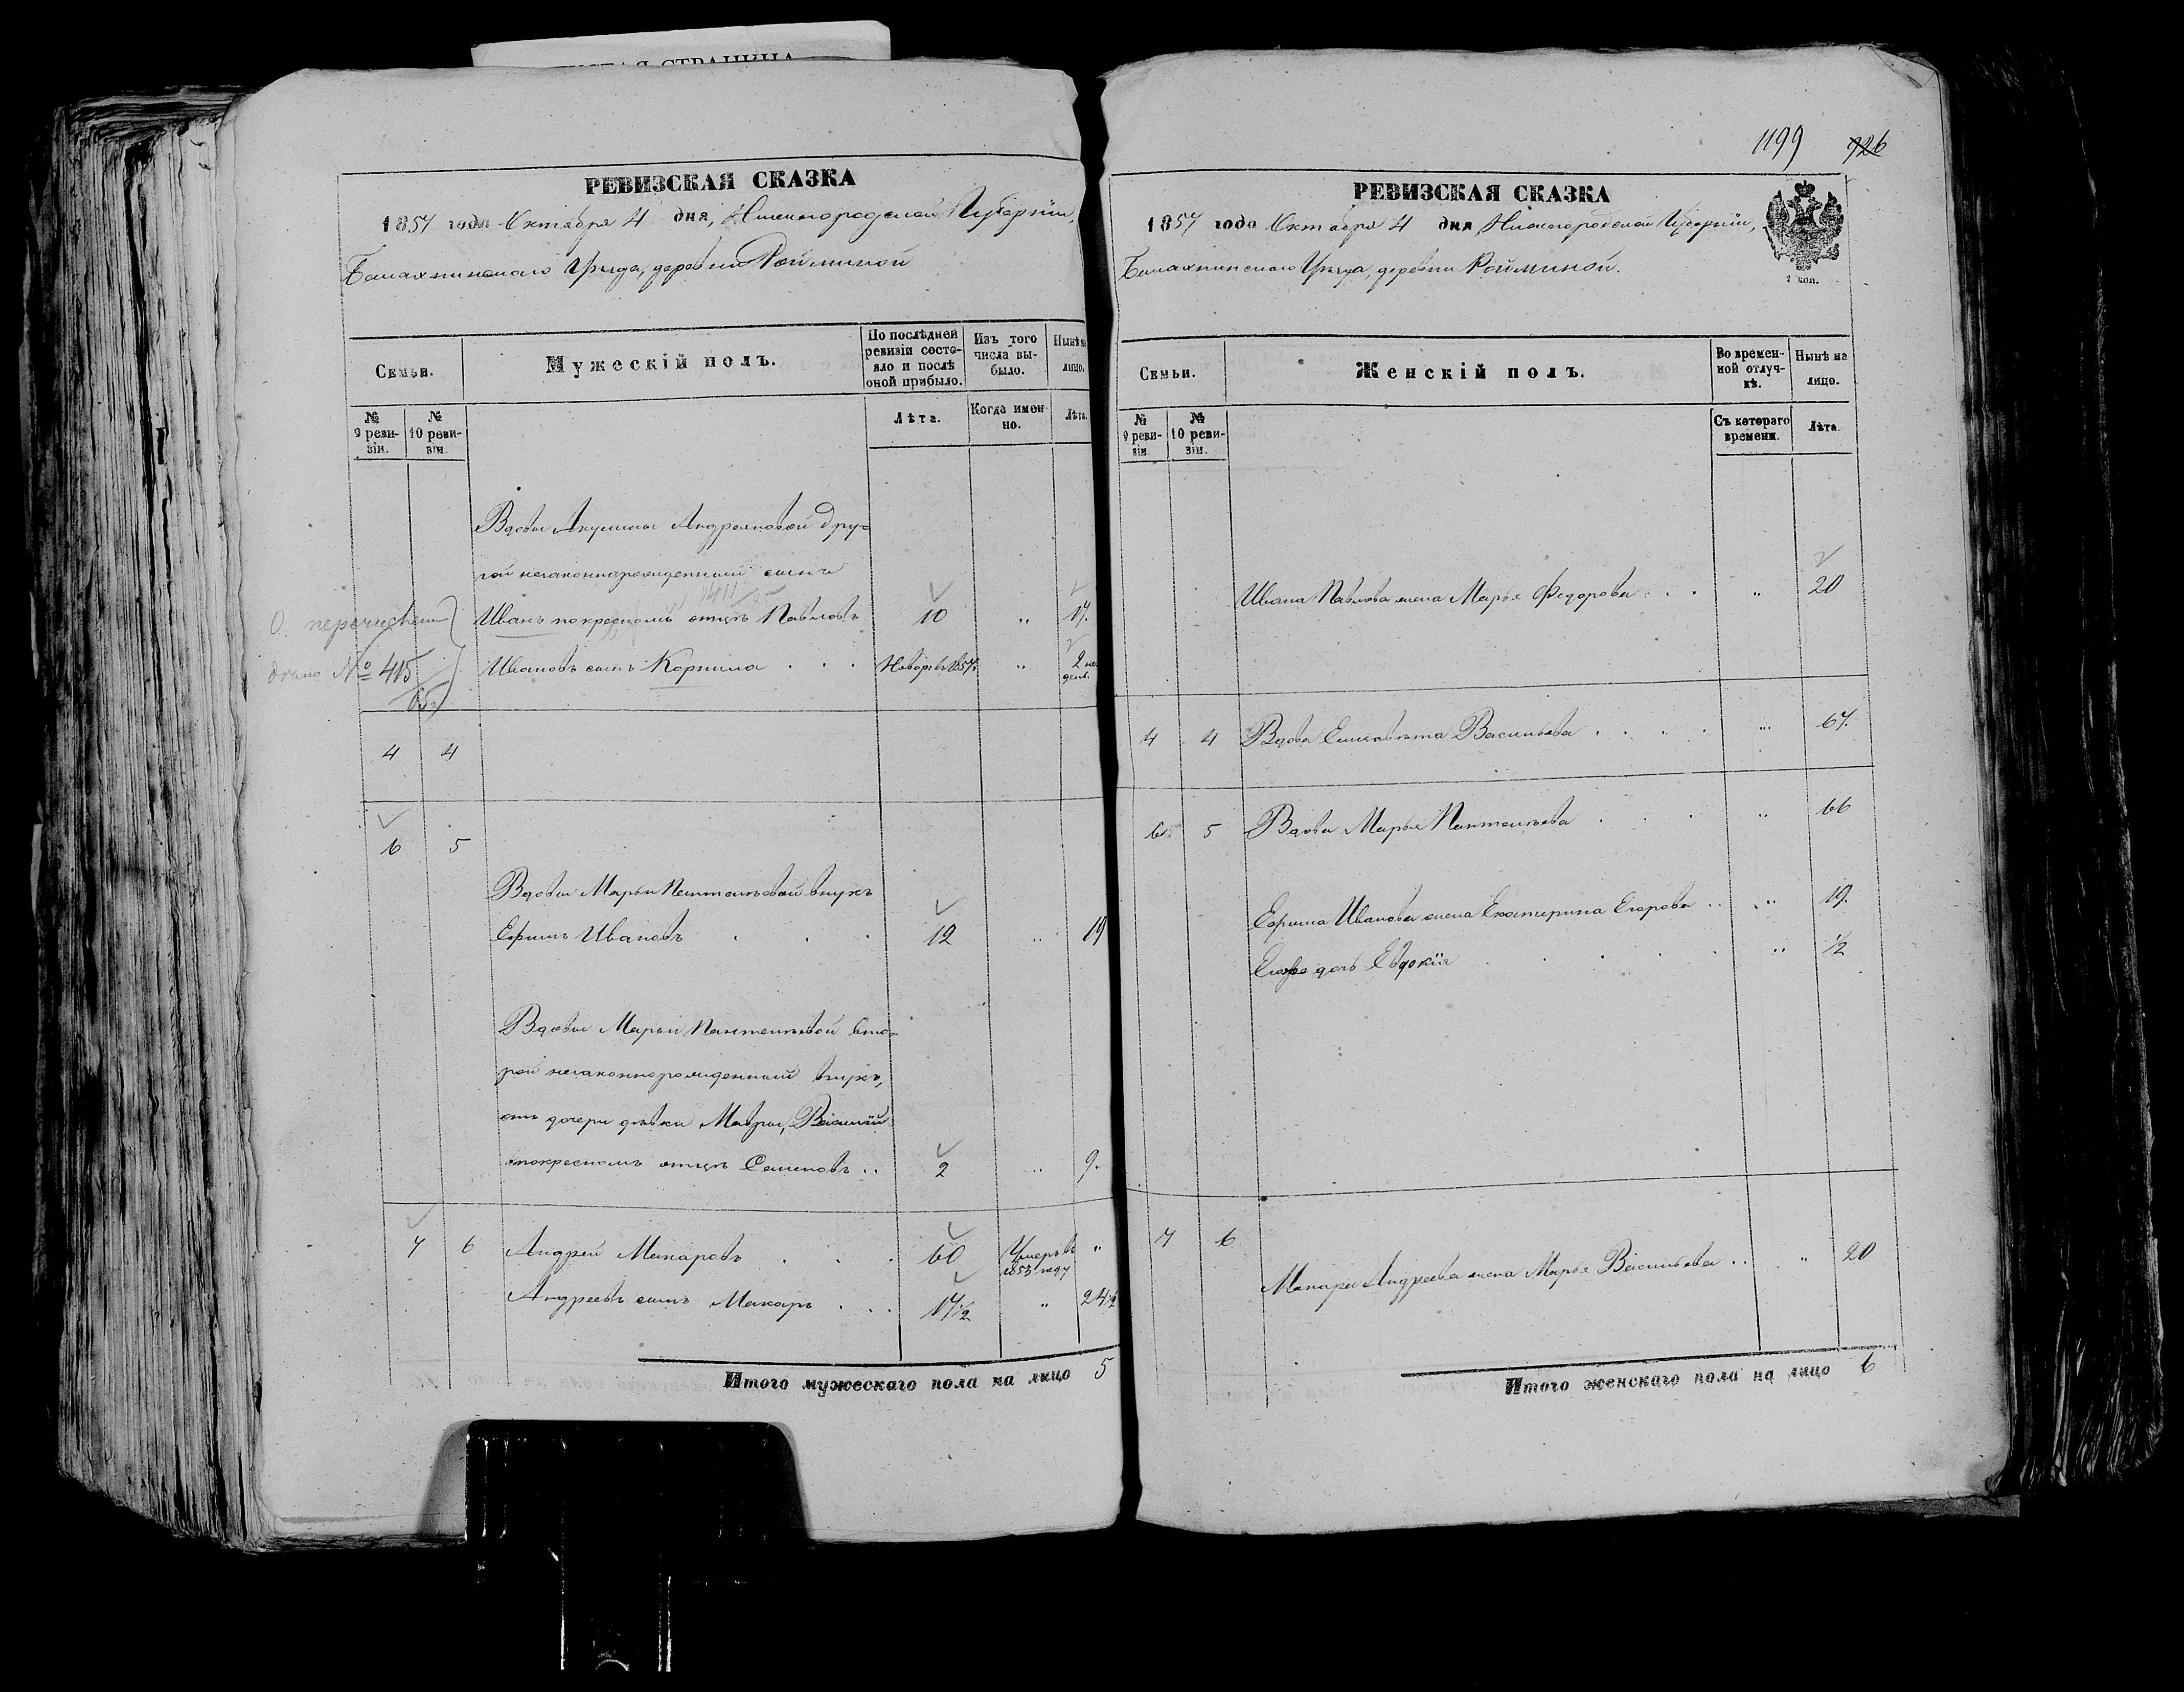 1199 926
РЕВИЗСКАЯ СКАЗКА
1857 года Октября 4 дня, Нижегородской Губерніи,
Балахнинскаго Уѣзда, деревни Рoйминой
Семьи.
Мужескій полъ.
По послѣдней ревизіи состояло и послѣ оной прибыло.
Изъ того числа выбыло.
Нынѣ на лицо.
№ 9 ревизіи.
№ 10 ревизіи.
Лѣта.
Когда именно.
Лѣта.
Вдовы Акулины Андреяновой дру=
гой незаконнорожденный сынъ
О. перечислении
Иванъ по крестномъ отцѣ Павловъ 10 „ 17.
дѣло № 415
65
Ивановъ сынъ Корнила . . . Новорж. 1857. „ 2 нед.
4 4
6 5
Вдовы Марьи Пантелѣевой внукъ
Ефимъ Ивановъ . . . 12 „ 19
Вдовы Марьи Пантелѣевой вто=
рой незаконнорожденный внукъ,
отъ дочери дѣвки Мавры, Василій
по крестномъ отцѣ Семеновъ .. 2 ... 9.
7 6 Андрей Макаровъ . . . 60 Умеръ въ 1853 году „
Андреевъ сынъ Макаръ . . . 17 1/2 „ 24 1/2
Итого мужескаго пола на лицо 5
РЕВИЗСКАЯ СКАЗКА
1857 года Октября 4 дня Нижегородской Губерніи,
Балахнинскаго Уѣзда, деревни Ройминой.
Семьи.
Женскій полъ.
Во временной отлучкѣ.
Нынѣ на лицо.
№ 9 ревизіи.
№ 10 ревизіи.
Съ котораго времени.
Лѣта.
Ивана Павлова жена Марья Федорова . . „ 20
4 4 Вдова Елизавѣта Васильева . . . . ... 67.
6 5 Вдова Марья Пантелѣева . . . „ 66
Ефима Иванова жена Екатерина Егорова .. „ 19.
Его дочь Евдокія . . . . „ 1/2
7 6
Макара Андреева жена Марья Васильева .. „ 20
Итого женскаго пола на лицо 6